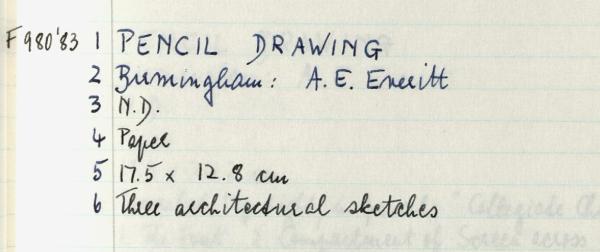 F980'83 1 PENCIL DRAWING
2 Birmingham: A. E. Everitt
3 N.D.
4 Paper
5 17.5 x 12.8 cm
6 Three architectural sketches